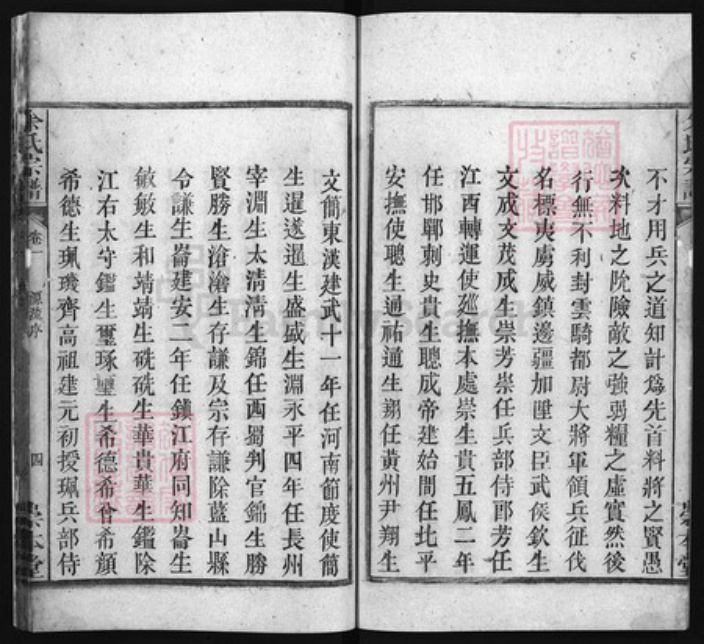 不才用兵之道知計爲先首料將之賢愚
次料地之阬險敵之強弱糧之虛實然後
行無不利封雲騎都尉大將軍領兵征伐
名標夷虜威鎮邊疆加陞文臣武侯欽生
文成文茂成生崇芳崇任兵部侍郎芳任
江西轉運使廵撫本處崇生貴五鳳二年
任邯鄲刺史貴生聰成帝建始間任北平
安撫使聰生通祐通生翊任黃州尹翔生
文簡東漢建武十一年任河南節度使簡
生暹遂暹生盛盛生淵永平四年任長州
宰淵生太清清生錦任西蜀判官錦生勝
賢勝生滄濬生存謙及宗存謙除藍山縣
令謙生崙建安二年任鎮江府同知崙生
敏敏生和靖靖生硄硄生華貴華生鑑除
江右太守鑑生璽琢璽生希德希曾希顏
希德生珮璣齊高祖建元初授珮兵部侍
余氏宗譜
卷一
源流序
四